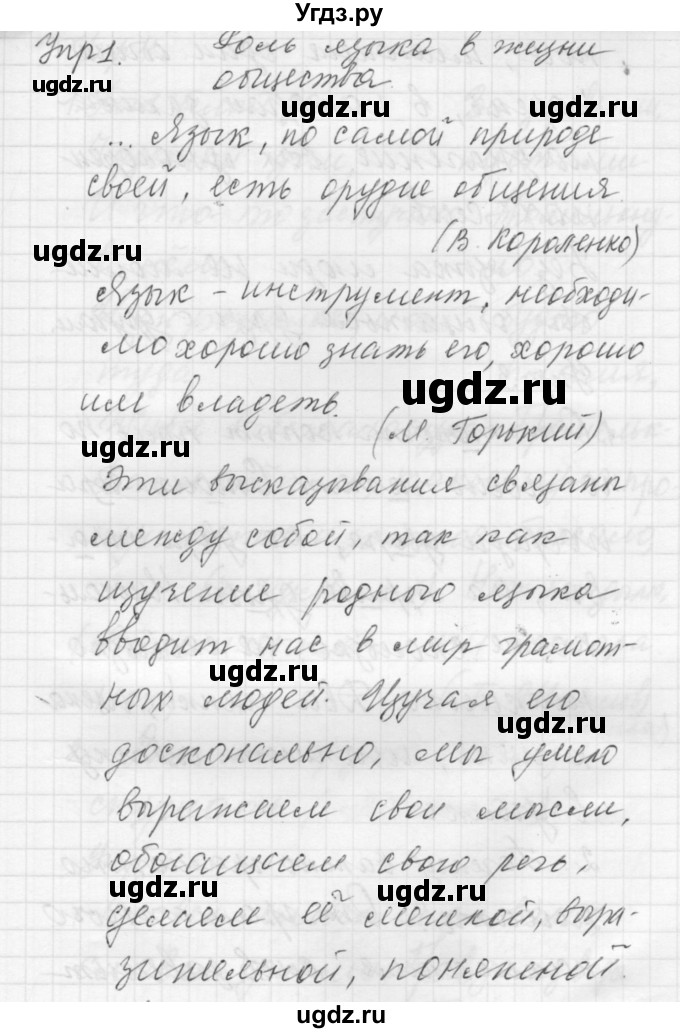 Угдз.ру
Упр1. Роль языка в жизни
общества.
ugdz.ru ugdz.ru
... Язык, по самой природе
своей, есть орудие общения.
(В. Короленко)
ugdz.ru
Язык - инструмент, необходи-
мо хорошо знать его, хорошо
им владеть.
ugdz.ru
(М. Горький)
ugdz.ru
Эти высказывания связаны
между собой, так как
изучение родного языка
вводит нас в мир грамот-
ugdz.ru
ных людей. Изучая его
ugdz.ru
досконально, мы умело
выражаем свои мысли,
обогащаем свою речь,
ugdz.ru ugdz.ru
делаем её меткой, выра-
зительной, понятной.
ugdz.ru ugdz.ru
ugdz.ru